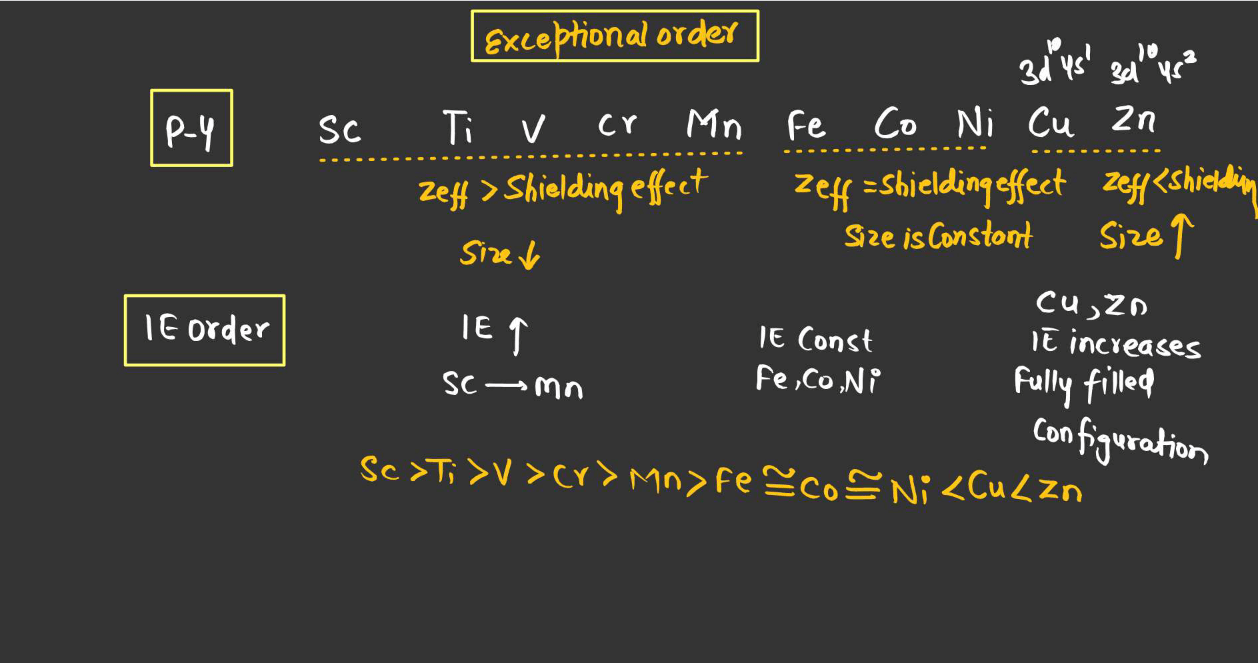 Exceptional order
3d¹⁰4s¹ 3d¹⁰4s²
P-4 Sc Ti V Cr Mn Fe Co Ni Cu Zn
Zeff > Shielding effect Zeff = Shielding effect Zeff < Shielding
Size ↓ Size is Constant Size ↑
IE order
IE ↑
Sc → Mn
IE Const
Fe, Co, Ni
Cu, Zn
IE increases
Fully filled
Configuration
Sc > Ti > V > Cr > Mn > Fe ≅ Co ≅ Ni < Cu < Zn